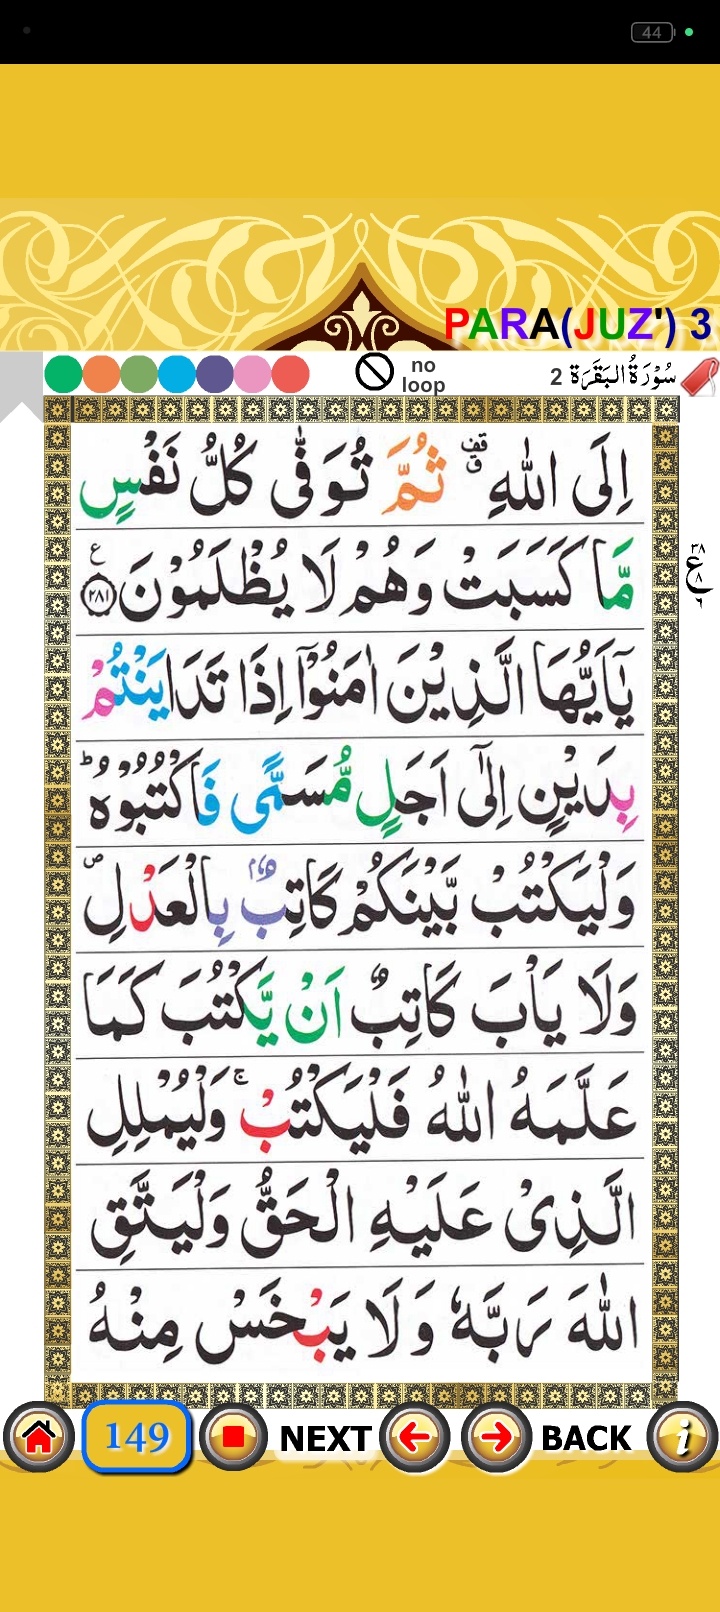 44
PARA(JUZ') 3
no
loop
2 سُوْرَةُ الْبَقَرَة
اِلَى اللّٰهِ ۗ ثُمَّ تُوَفّٰى كُلُّ نَفْسٍ
مَّا كَسَبَتْ وَهُمْ لَا يُظْلَمُوْنَ ﴿۲۸۱﴾ ع
۳۸ ع ۸ ۶
يٰۤاَيُّهَا الَّذِيْنَ اٰمَنُوْۤا اِذَا تَدَايَنْتُمْ
بِدَيْنٍ اِلٰۤى اَجَلٍ مُّسَمًّى فَاكْتُبُوْهُ ؕ
وَلْيَكْتُبْ بَّيْنَكُمْ كَاتِبٌۢ بِالْعَدْلِ ۪
وَلَا يَاْبَ كَاتِبٌ اَنْ يَّكْتُبَ كَمَا
عَلَّمَهُ اللّٰهُ فَلْيَكْتُبْ ۚ وَلْيُمْلِلِ
الَّذِيْ عَلَيْهِ الْحَقُّ وَلْيَتَّقِ
اللّٰهَ رَبَّهٗ وَلَا يَبْخَسْ مِنْهُ
149 NEXT BACK i